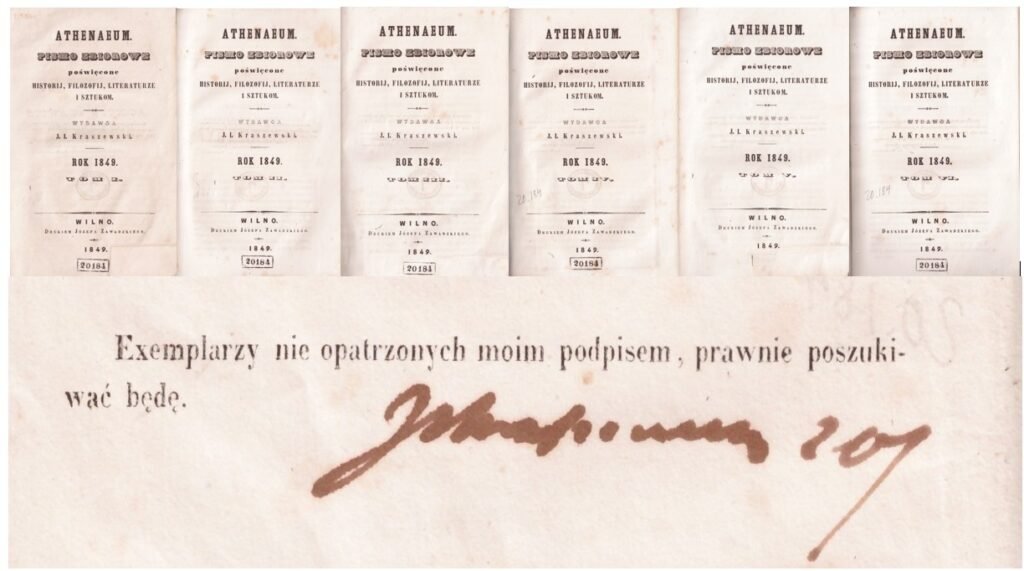 ATHENAEUM.
PISMO ZBIOROWE
poświęcone
HISTORIJ, FILOZOFIJ, LITERATURZE
I SZTUKOM.
WYDAWCA
J. I. Kraszewski.
ROK 1849.
TOM I.
WILNO.
Drukiem Józefa Zawadzkiego.
1849.
20184
ATHENAEUM.
PISMO ZBIOROWE
poświęcone
HISTORIJ, FILOZOFIJ, LITERATURZE
I SZTUKOM.
WYDAWCA
J. I. Kraszewski.
ROK 1849.
TOM II.
WILNO.
Drukiem Józefa Zawadzkiego.
1849.
20184
ATHENAEUM.
PISMO ZBIOROWE
poświęcone
HISTORIJ, FILOZOFIJ, LITERATURZE
I SZTUKOM.
WYDAWCA
J. I. Kraszewski.
ROK 1849.
TOM III.
WILNO.
Drukiem Józefa Zawadzkiego.
1849.
20184
ATHENAEUM.
PISMO ZBIOROWE
poświęcone
HISTORIJ, FILOZOFIJ, LITERATURZE
I SZTUKOM.
WYDAWCA
J. I. Kraszewski.
ROK 1849.
TOM IV.
20.184
WILNO.
Drukiem Józefa Zawadzkiego.
1849.
20184
ATHENAEUM.
PISMO ZBIOROWE
poświęcone
HISTORIJ, FILOZOFIJ, LITERATURZE
I SZTUKOM.
WYDAWCA
J. I. Kraszewski.
ROK 1849.
TOM V.
WILNO.
Drukiem Józefa Zawadzkiego.
1849.
ATHENAEUM.
PISMO ZBIOROWE
poświęcone
HISTORIJ, FILOZOFIJ, LITERATURZE
I SZTUKOM.
WYDAWCA
J. I. Kraszewski.
ROK 1849.
TOM VI.
20.184
WILNO.
Drukiem Józefa Zawadzkiego.
1849.
20184
Exemplarzy nie opatrzonych moim podpisem, prawnie poszuki-
wać będę.